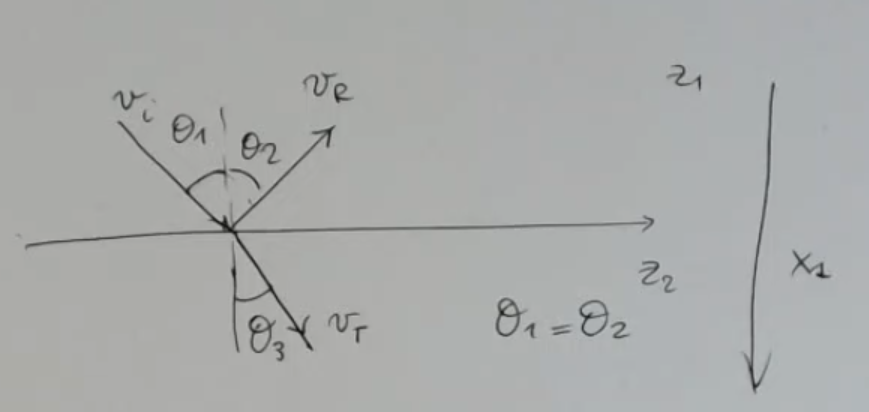 v_i θ_1 θ_2 v_R z_1
z_2 x_1
θ_3 v_T θ_1 = θ_2